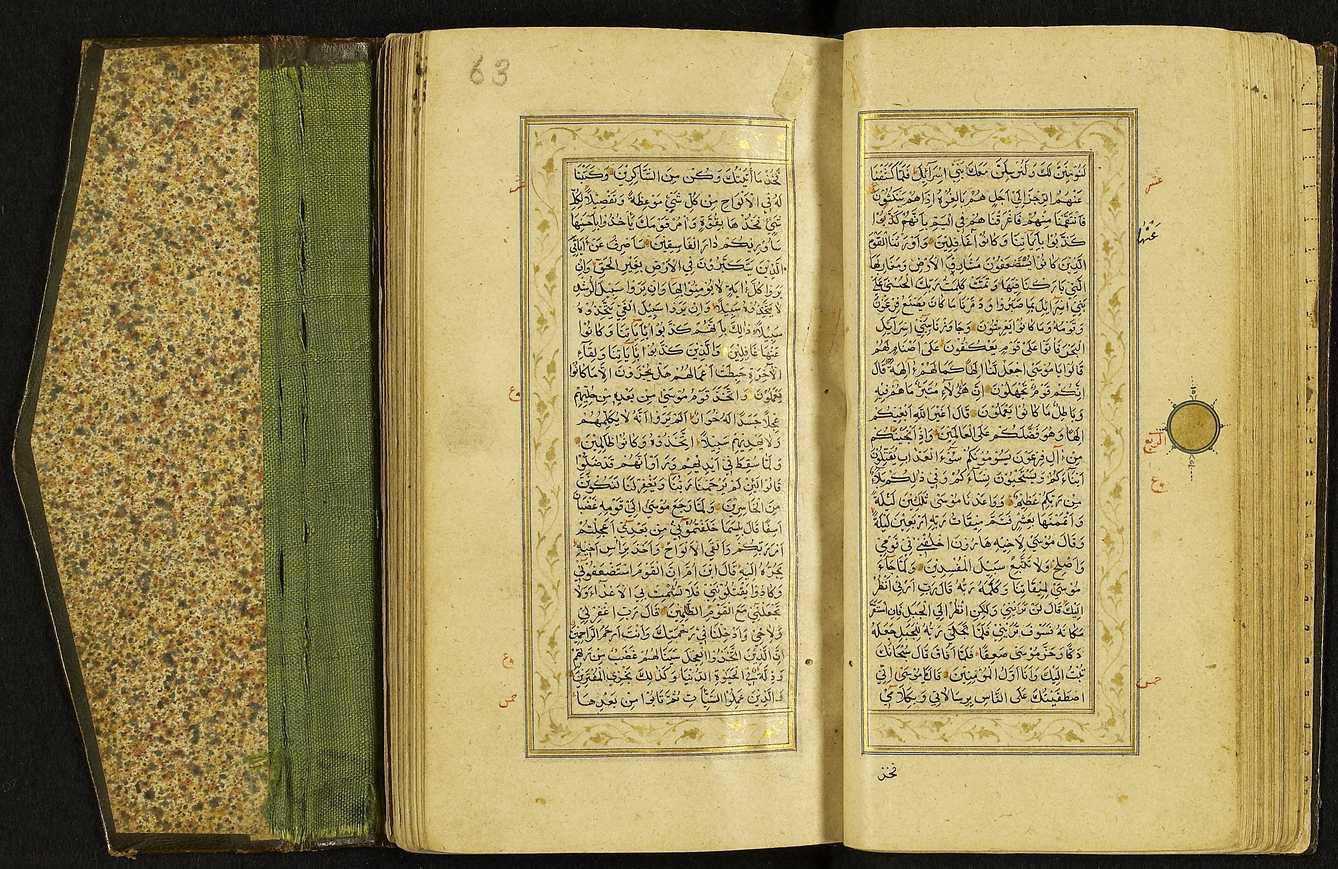 لَنُؤْمِنَنَّ لَكَ وَلَنُرْسِلَنَّ مَعَكَ بَنِي اِسْرَآئِيلَ فَلَمَّا كَشَفْنَا
عَنْهُمُ الرِّجْزَ اِلَى اَجَلٍ هُمْ بَالِغُوهُ اِذَا هُمْ يَنْكُثُونَ
فَانْتَقَمْنَا مِنْهُمْ فَاَغْرَقْنَاهُمْ فِي الْيَمِّ بِاَنَّهُمْ كَذَّبُوا
كَذَّبُوا بِاٰيَاتِنَا وَكَانُوا غَافِلِينَ وَاَوْرَثْنَا الْقَوْمَ
الَّذِينَ كَانُوا يُسْتَضْعَفُونَ مَشَارِقَ الْاَرْضِ وَمَغَارِبَهَا
الَّتِي بَارَكْنَا فِيهَا وَتَمَّتْ كَلِمَتُ رَبِّكَ الْحُسْنَى عَلَى
بَنِي اِسْرَآئِيلَ بِمَا صَبَرُوا وَدَمَّرْنَا مَا كَانَ يَصْنَعُ فِرْعَوْنُ
وَقَوْمُهُ وَمَا كَانُوا يَعْرِشُونَ وَجَاوَزْنَا بِبَنِي اِسْرَآئِيلَ
الْبَحْرَ فَاَتَوْا عَلَى قَوْمٍ يَعْكُفُونَ عَلَى اَصْنَامٍ لَهُمْ
قَالُوا يَا مُوسَى اجْعَلْ لَنَا اِلٰهًا كَمَا لَهُمْ اٰلِهَةٌ قَالَ
اِنَّكُمْ قَوْمٌ تَجْهَلُونَ اِنَّ هٰؤُلَاءِ مُتَبَّرٌ مَا هُمْ فِيهِ
وَبَاطِلٌ مَا كَانُوا يَعْمَلُونَ قَالَ اَغَيْرَ اللّٰهِ اَبْغِيكُمْ
اِلٰهًا وَهُوَ فَضَّلَكُمْ عَلَى الْعَالَمِينَ وَاِذْ اَنْجَيْنَاكُمْ
مِنْ اٰلِ فِرْعَوْنَ يَسُومُونَكُمْ سُوٓءَ الْعَذَابِ يُقَتِّلُونَ
اَبْنَاءَكُمْ وَيَسْتَحْيُونَ نِسَاءَكُمْ وَفِي ذَالِكُمْ بَلَاءٌ
مِنْ رَبِّكُمْ عَظِيمٌ وَوَاعَدْنَا مُوسَى ثَلٰثِينَ لَيْلَةً
وَاَتْمَمْنٰهَا بِعَشْرٍ فَتَمَّ مِيقَاتُ رَبِّهِ اَرْبَعِينَ لَيْلَةً
وَقَالَ مُوسَى لِاَخِيهِ هَارُونَ اخْلُفْنِي فِي قَوْمِي
وَاَصْلِحْ وَلَا تَتَّبِعْ سَبِيلَ الْمُفْسِدِينَ وَلَمَّا جَاءَ
مُوسَى لِمِيقَاتِنَا وَكَلَّمَهُ رَبُّهُ قَالَ رَبِّ اَرِنِي اَنْظُرْ
اِلَيْكَ قَالَ لَنْ تَرٰينِي وَلٰكِنِ انْظُرْ اِلَى الْجَبَلِ فَاِنِ اسْتَقَرَّ
مَكَانَهُ فَسَوْفَ تَرٰينِي فَلَمَّا تَجَلَّى رَبُّهُ لِلْجَبَلِ جَعَلَهُ
دَكًّا وَخَرَّ مُوسَى صَعِقًا فَلَمَّا اَفَاقَ قَالَ سُبْحَانَكَ
تُبْتُ اِلَيْكَ وَاَنَا اَوَّلُ الْمُؤْمِنِينَ قَالَ يَا مُوسَى اِنِّي
اصْطَفَيْتُكَ عَلَى النَّاسِ بِرِسَالَاتِي وَبِكَلَامِي
فخذ
عشر
عَنْهَا
الربع
ع
خمس
63
فَخُذْ مَا اٰتَيْتُكَ وَكُنْ مِنَ الشَّاكِرِينَ وَكَتَبْنَا
لَهُ فِي الْاَلْوَاحِ مِنْ كُلِّ شَيْءٍ مَوْعِظَةً وَتَفْصِيلًا لِكُلِّ
شَيْءٍ فَخُذْهَا بِقُوَّةٍ وَاْمُرْ قَوْمَكَ يَاْخُذُوا بِاَحْسَنِهَا
سَاُورِيكُمْ دَارَ الْفَاسِقِينَ سَاَصْرِفُ عَنْ اٰيَاتِيَ
الَّذِينَ يَتَكَبَّرُونَ فِي الْاَرْضِ بِغَيْرِ الْحَقِّ وَاِنْ
يَرَوْا كُلَّ اٰيَةٍ لَا يُؤْمِنُوا بِهَا وَاِنْ يَرَوْا سَبِيلَ الرُّشْدِ
لَا يَتَّخِذُوهُ سَبِيلًا وَاِنْ يَرَوْا سَبِيلَ الْغَيِّ يَتَّخِذُوهُ
سَبِيلًا ذَالِكَ بِاَنَّهُمْ كَذَّبُوا بِاٰيَاتِنَا وَكَانُوا
عَنْهَا غَافِلِينَ وَالَّذِينَ كَذَّبُوا بِاٰيَاتِنَا وَلِقَاءِ
الْاٰخِرَةِ حَبِطَتْ اَعْمَالُهُمْ هَلْ يُجْزَوْنَ اِلَّا مَا كَانُوا
يَعْمَلُونَ وَاتَّخَذَ قَوْمُ مُوسَى مِنْ بَعْدِهِ مِنْ حُلِيِّهِمْ
عِجْلًا جَسَدًا لَهُ خُوَارٌ اَلَمْ يَرَوْا اَنَّهُ لَا يُكَلِّمُهُمْ
وَلَا يَهْدِيهِمْ سَبِيلًا اتَّخَذُوهُ وَكَانُوا ظَالِمِينَ
وَلَمَّا سُقِطَ فِي اَيْدِيهِمْ وَرَاَوْا اَنَّهُمْ قَدْ ضَلُّوا
قَالُوا لَئِنْ لَمْ يَرْحَمْنَا رَبُّنَا وَيَغْفِرْ لَنَا لَنَكُونَنَّ
مِنَ الْخَاسِرِينَ وَلَمَّا رَجَعَ مُوسَى اِلَى قَوْمِهِ غَضْبَانَ
اَسِفًا قَالَ بِئْسَمَا خَلَفْتُمُونِي مِنْ بَعْدِي اَعَجِلْتُمْ
اَمْرَ رَبِّكُمْ وَاَلْقَى الْاَلْوَاحَ وَاَخَذَ بِرَاْسِ اَخِيهِ
يَجُرُّهُ اِلَيْهِ قَالَ ابْنَ اُمَّ اِنَّ الْقَوْمَ اسْتَضْعَفُونِي
وَكَادُوا يَقْتُلُونَنِي فَلَا تُشْمِتْ بِيَ الْاَعْدَاءَ وَلَا
تَجْعَلْنِي مَعَ الْقَوْمِ الظَّالِمِينَ قَالَ رَبِّ اغْفِرْ لِي
وَلِاَخِي وَاَدْخِلْنَا فِي رَحْمَتِكَ وَاَنْتَ اَرْحَمُ الرَّاحِمِينَ
اِنَّ الَّذِينَ اتَّخَذُوا الْعِجْلَ سَيَنَالُهُمْ غَضَبٌ مِنْ رَبِّهِمْ
وَذِلَّةٌ فِي الْحَيٰوةِ الدُّنْيَا وَكَذَالِكَ نَجْزِي الْمُفْتَرِينَ
وَالَّذِينَ عَمِلُوا السَّيِّئَاتِ ثُمَّ تَابُوا مِنْ بَعْدِهَا
عشر
ع
ع
خمس